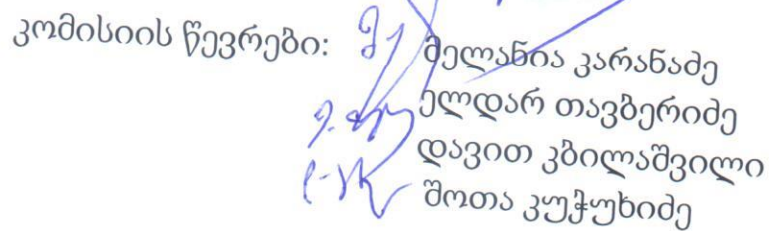 კომისიის წევრები: მელანია კარანაძე
ელდარ თავბერიძე
დავით კბილაშვილი
შოთა კუჭუხიძე